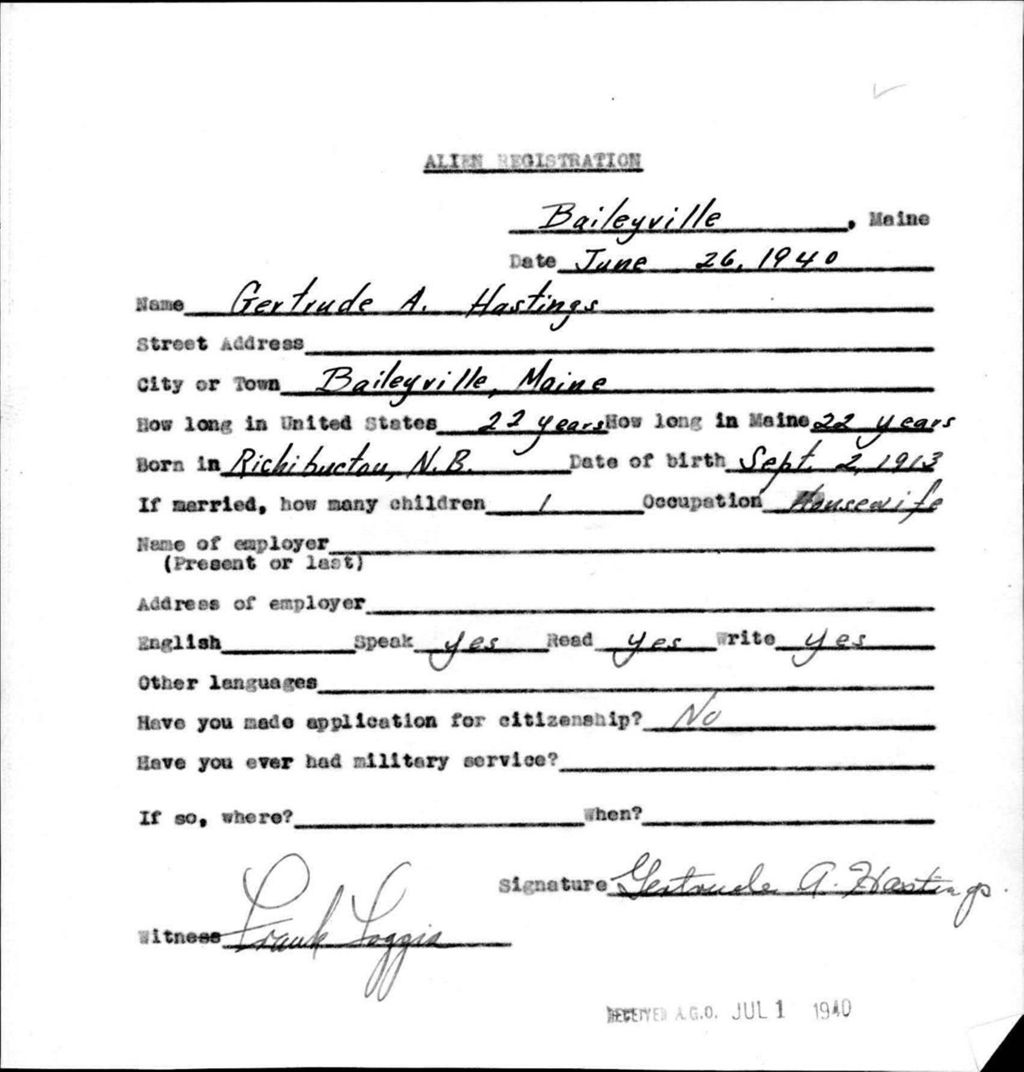 ALIEN REGISTRATION
Baileyville, Maine
Date June 26, 1940
Name Gertrude A. Hastings
Street Address
City or Town Baileyville, Maine
How long in United States 22 years How long in Maine 22 years
Born in Richibuctou, N.B. Date of birth Sept. 2, 1913
If married, how many children 1 Occupation Housewife
Name of employer
(Present or last)
Address of employer
English Speak yes Read yes Write yes
Other languages
Have you made application for citizenship? No
Have you ever had military service?
If so, where? When?
Signature Gertrude A. Hastings
Witness Frank Loggia
RECEIVED A.G.O. JUL 1 1940